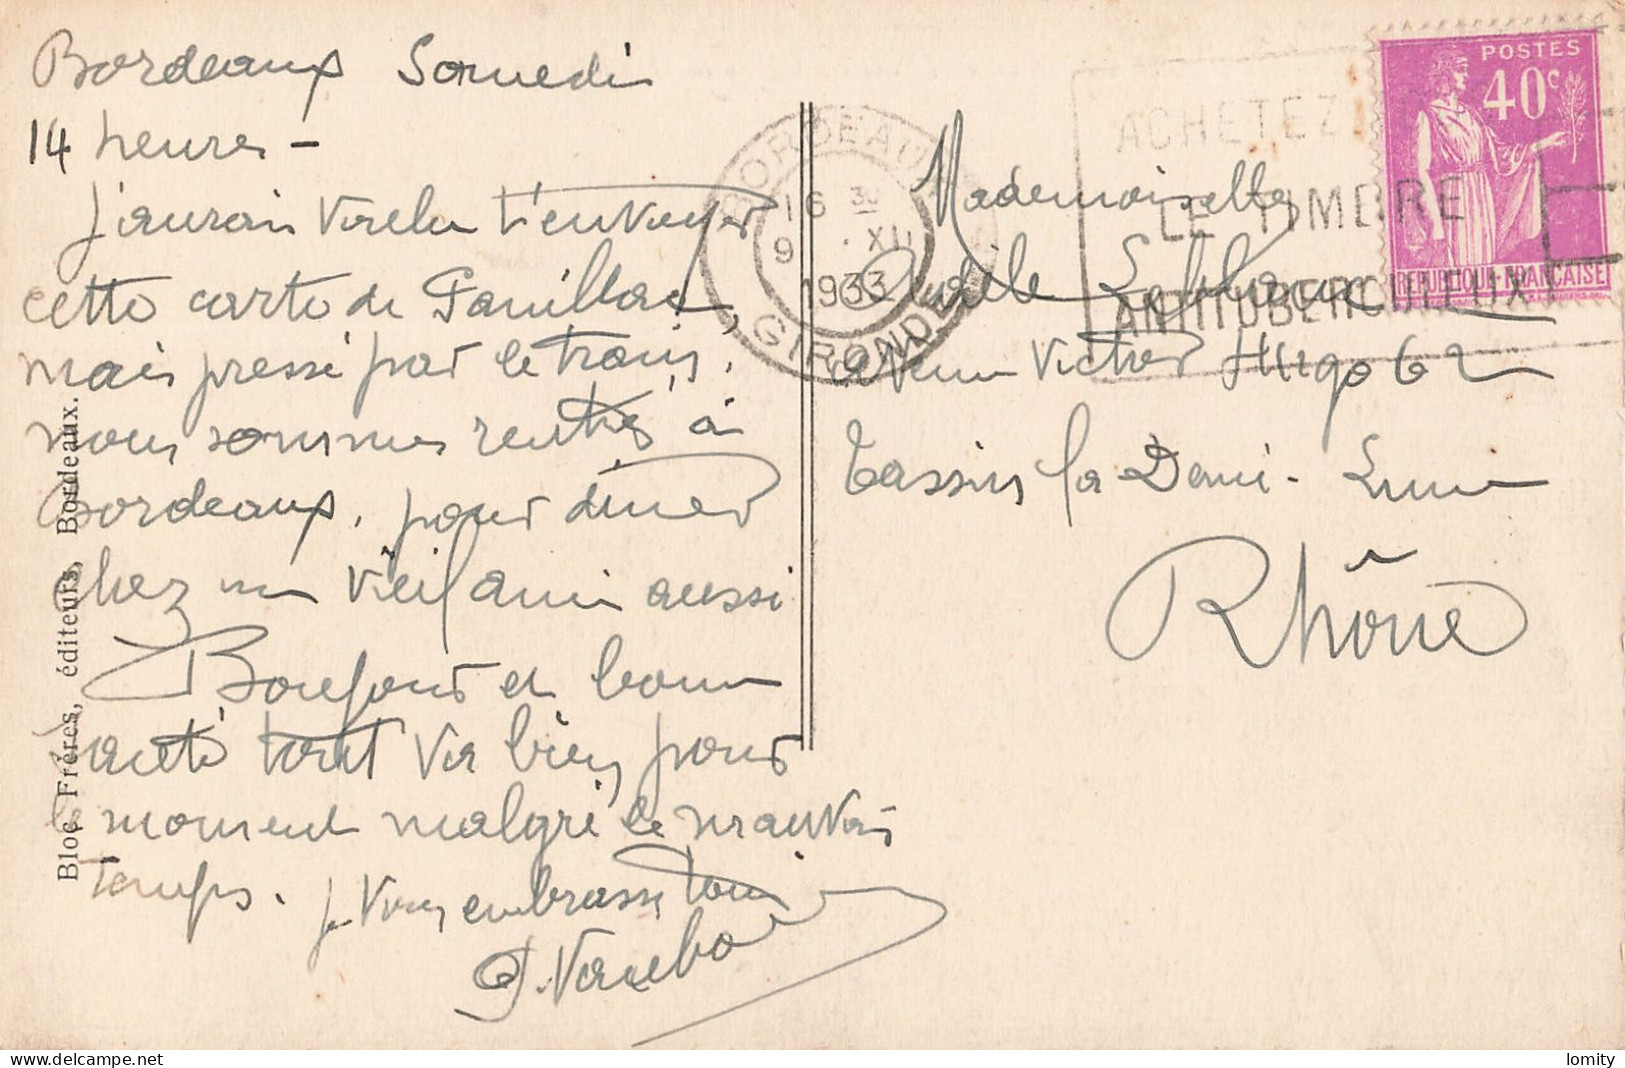 Bordeaux Samedi
14 heures -
J'aurais voulu t'envoyer
cette carte de Pauillac,
mais pressé par le train,
nous sommes rentrés à
Bordeaux, pour diner
chez un vieil ami aussi
Bonjour et bonne
santé tout va bien pour
moment malgré le mauvais
temps. je vous embrasse tous
Bloc Frères, éditeurs, Bordeaux.
BORDEAUX
16 30
9 . XII
1933
GIRONDE
ACHETEZ
LE TIMBRE
ANTITUBERCULEUX
POSTES
40c
REPUBLIQUE FRANÇAISE
Mademoiselle
Odile
avenue Victor Hugo 62
Tassin la Demi-Lune
Rhône
lomity
DELCAMPE.NET